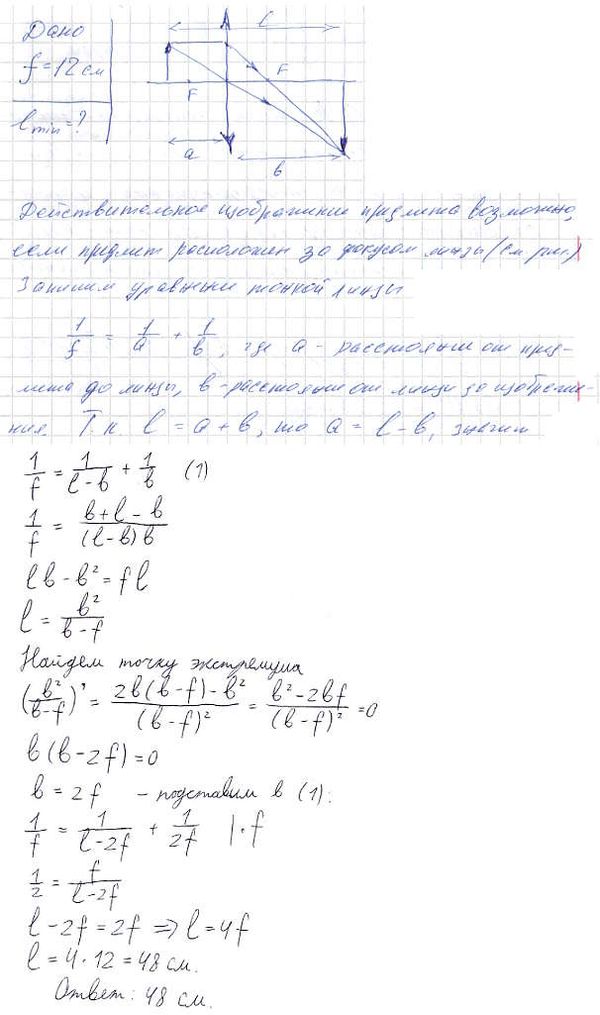 Дано
f = 12 см
l min = ?
l
F
F
a
b
Действительное изображение предмета возможно,
если предмет расположен за фокусом линзы (см. рис.)
Запишем уравнение тонкой линзы
1/f = 1/a + 1/b, где a - расстояние от пред-
мета до линзы, b - расстояние от линзы до изображе-
ния. Т.к. l = a + b, то a = l - b, значит
1/f = 1/(l - b) + 1/b (1)
1/f = (b + l - b)/((l - b) b)
l b - b² = f l
l = b²/(b - f)
Найдем точку экстремума
(b²/(b - f))' = (2b(b - f) - b²)/(b - f)² = (b² - 2bf)/(b - f)² = 0
b (b - 2f) = 0
b = 2f - подставим в (1):
1/f = 1/(l - 2f) + 1/2f | · f
1/2 = f/(l - 2f)
l - 2f = 2f ⇒ l = 4f
l = 4 · 12 = 48 см.
Ответ: 48 см.